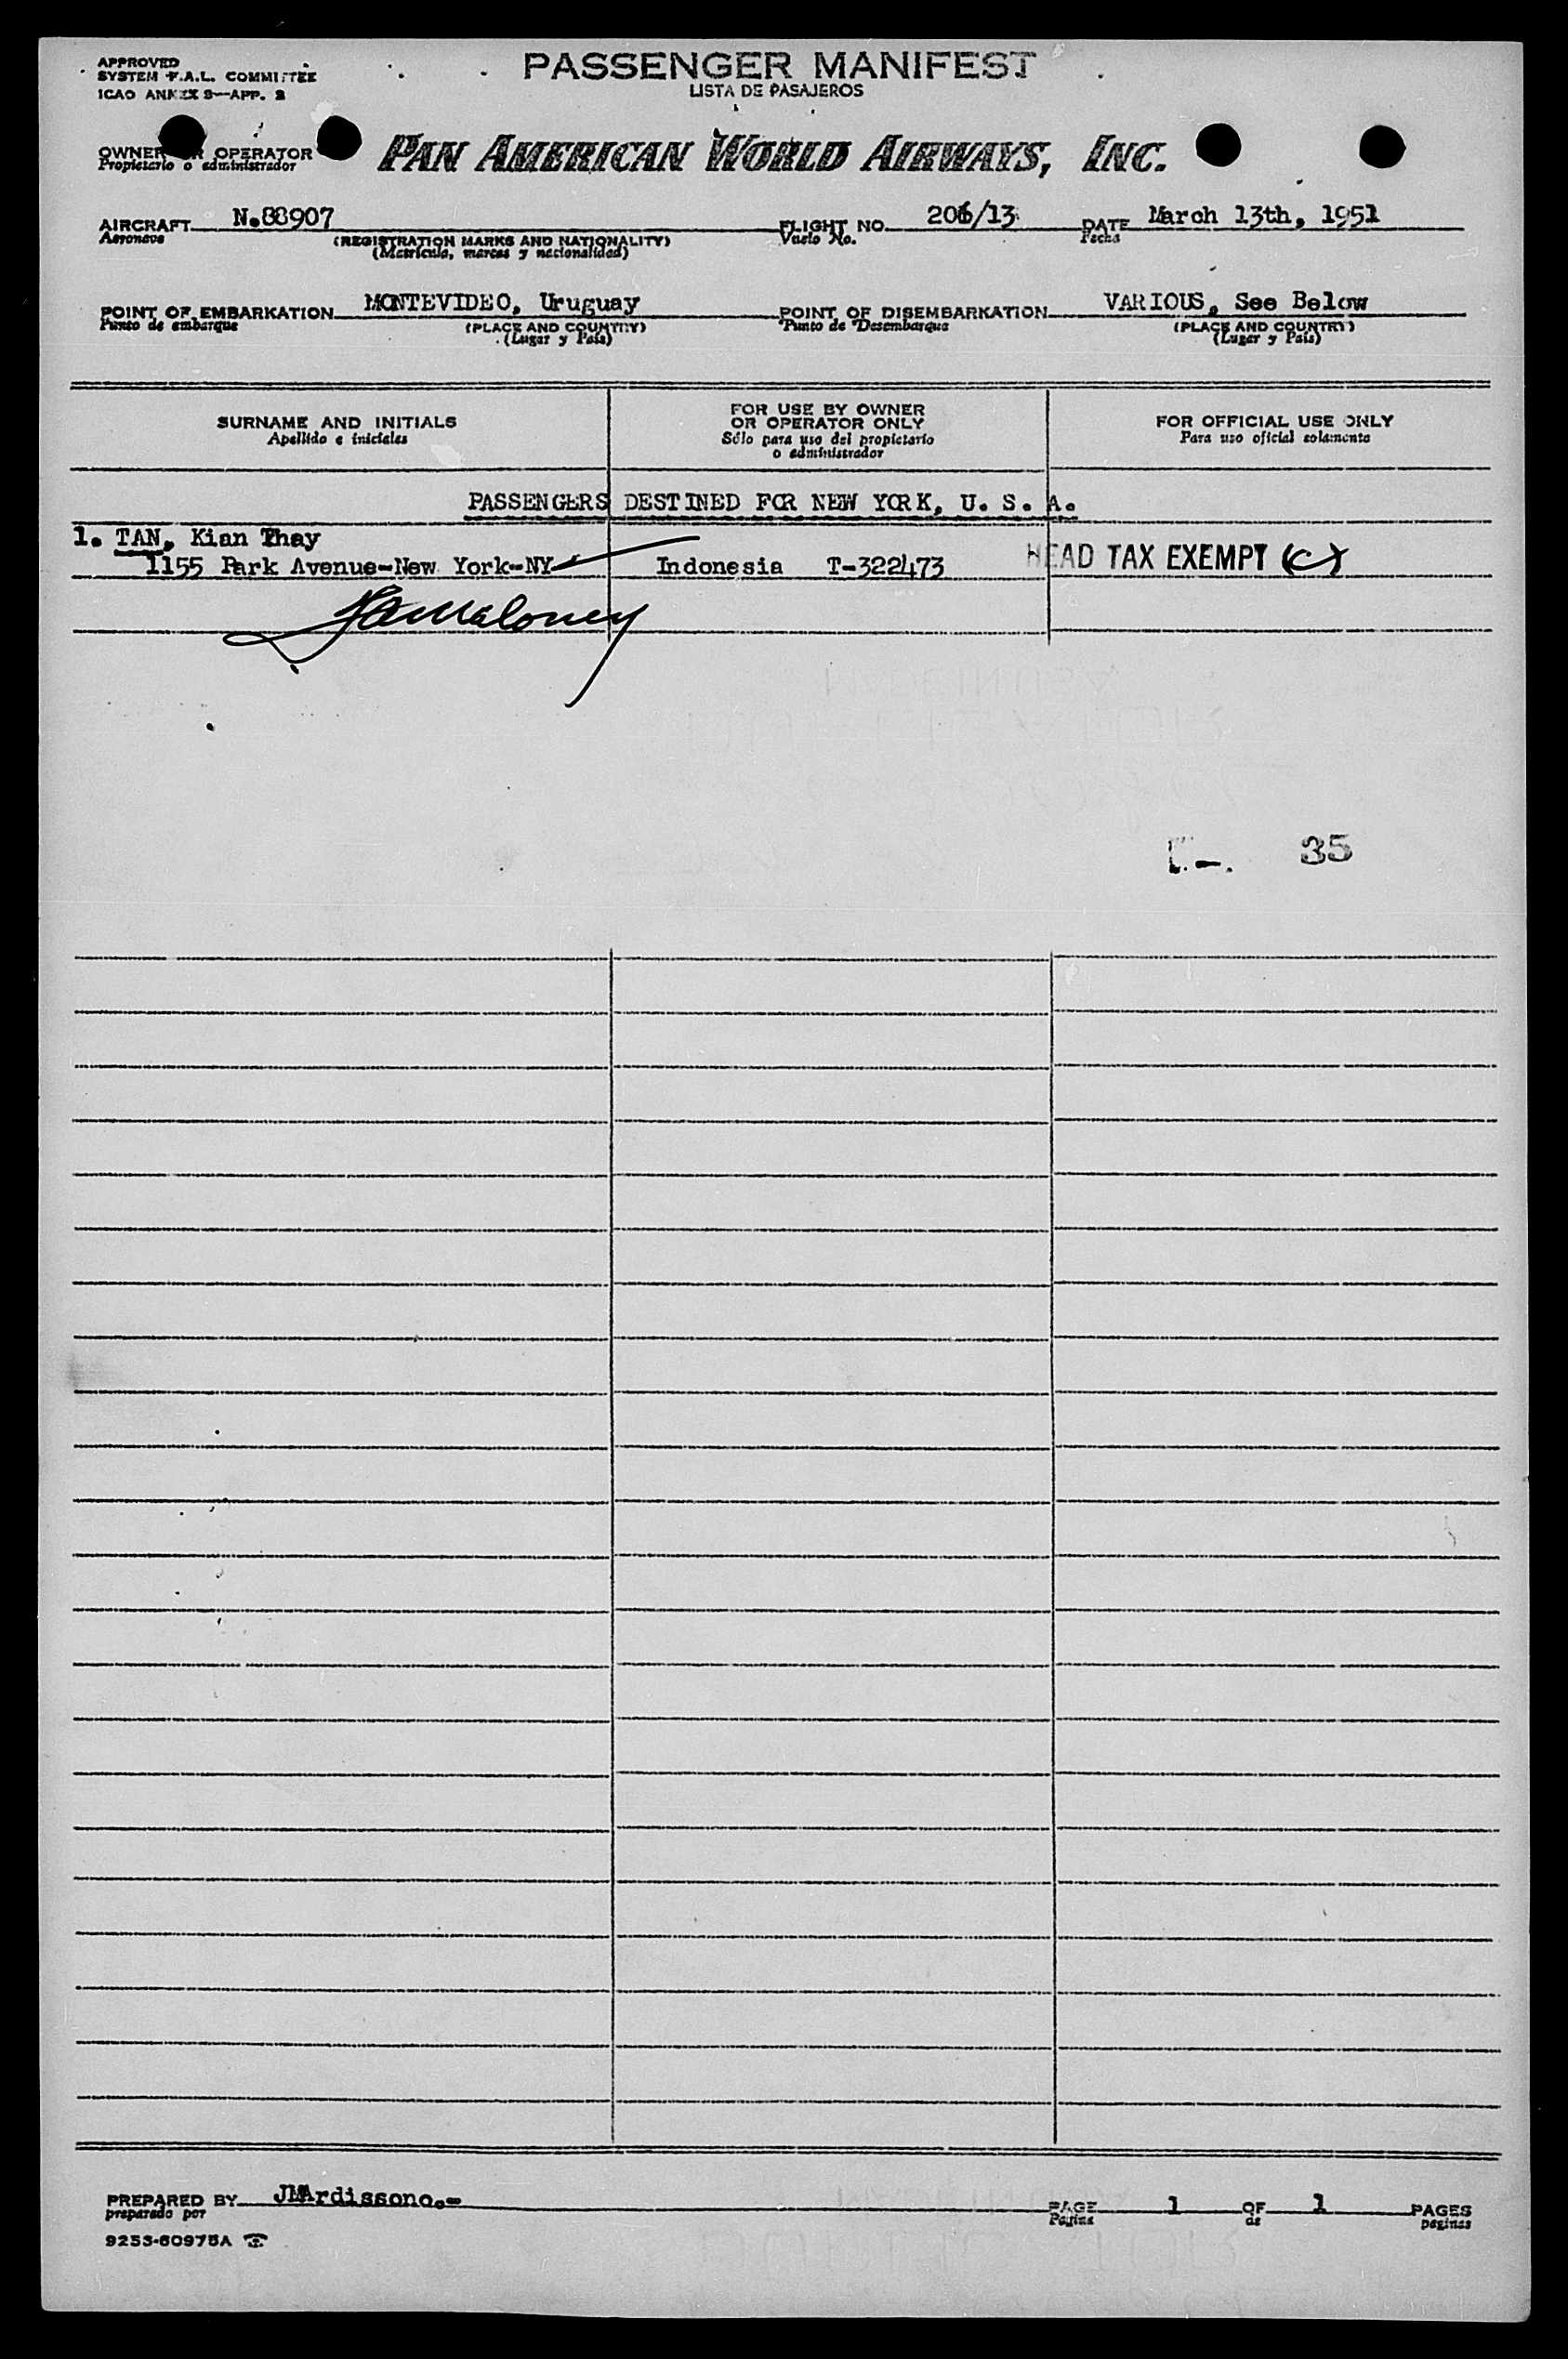 APPROVED
SYSTEM F.A.L. COMMITTEE
ICAO ANNEX 9—APP. 2
PASSENGER MANIFEST
LISTA DE PASAJEROS
OWNER OR OPERATOR
Propietario o administrador
PAN AMERICAN WORLD AIRWAYS, INC.
AIRCRAFT N.88907
Aeronave
(REGISTRATION MARKS AND NATIONALITY)
(Matrícula, marcas y nacionalidad)
FLIGHT NO. 206/13
Vuelo No.
DATE March 13th, 1951
Fecha
POINT OF EMBARKATION MONTEVIDEO, Uruguay
Punto de embarque
(PLACE AND COUNTRY)
(Lugar y País)
POINT OF DISEMBARKATION VARIOUS, See Below
Punto de Desembarque
(PLACE AND COUNTRY)
(Lugar y País)
SURNAME AND INITIALS
Apellido e iniciales
FOR USE BY OWNER
OR OPERATOR ONLY
Sólo para uso del propietario
o administrador
FOR OFFICIAL USE ONLY
Para uso oficial solamente
PASSENGERS DESTINED FOR NEW YORK, U. S. A.
1. TAN, Kian Thay
1155 Park Avenue-New York-NY Indonesia T-322473 HEAD TAX EXEMPT (C)
35
PREPARED BY JMArdissono.-
preparado por
PAGE 1 OF 1 PAGES
Página de páginas
9253-60975A